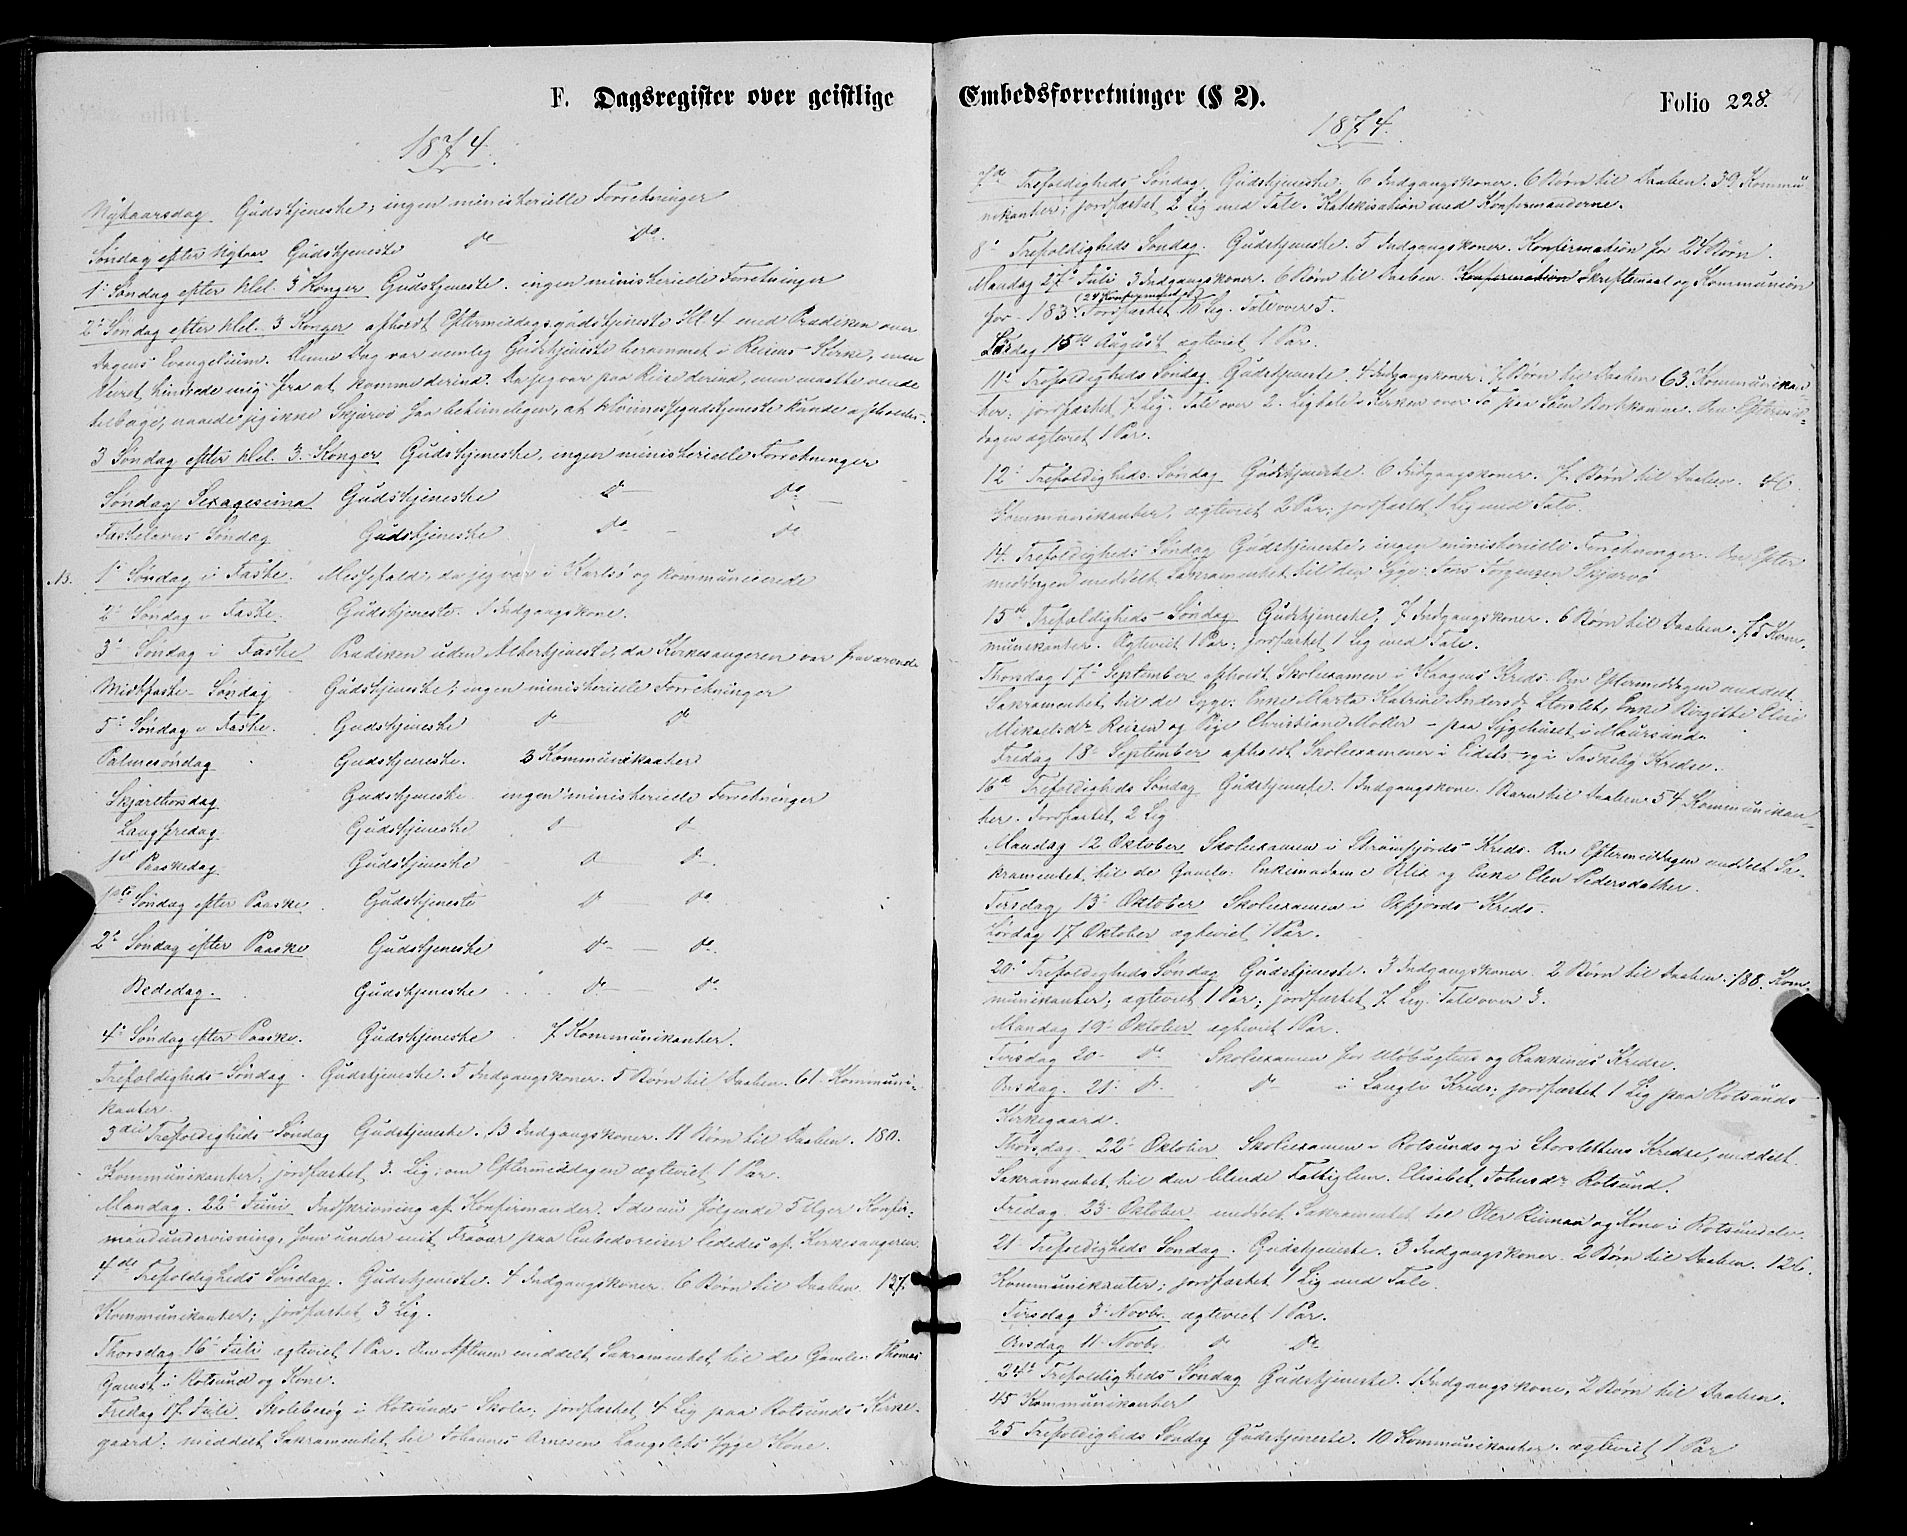 F. Dagsregister over geistlige
1874.
Nytaarsdag Gudstjeneste; ingen ministerielle Forretninger
Søndag efter Nytaar Gudstjeneste do do.
1ᵉ Søndag efter hlel. 3 Konger Gudstjeneste. ingen ministerielle Forretninger
2ᵉ Søndag efter hlel. 3 Konger afholdt Eftermiddagsgudstjeneste Kl. 4 med Prædiken over
Dagens Evangelium. Denne Dag var nemlig Gudstjeneste berammet i Reisens Kirke, men
Veiret hindrede mig fra at komme derind. Da jeg var paa Reise derind, men maatte vende
tilbage, naaede jeg ikke Skjærvø saa betimeligen, at Høimessegudstjeneste kunde afholdes.
3 Søndag efter hlel. 3. Konger Gudstjeneste, ingen ministerielle Forretninger
Søndag Sexagesima Gudstjeneste do do
Fastelavns Søndag Gudstjeneste do do
NB. 1ᵉ Søndag i Faste. Messefald, da jeg var i Karlsø og kommunicerede
2ᵉ Søndag i Faste. Gudstjeneste. 1 Indgangskone.
3ᵉ Søndag i Faste Prædiken uden Altertjeneste, da Kirkesangeren var fraværende
Midtfaste-Søndag Gudstjeneste; ingen ministerielle Forretninger
5ᵉ Søndag i Faste. Gudstjeneste do do
Palmesøndag Gudstjeneste. 3 Kommunikanter
Skjærthorsdag Gudstjeneste ingen ministerielle Forretninger
Langfredag Gudstjeneste do do
1ste Paaskedag Gudstjeneste do do.
1ste Søndag efter Paaske Gudstjeneste do do.
2ᵉ Søndag efter Paaske Gudstjeneste do do.
Bededag. Gudstjeneste do do.
4ᵉ Søndag efter Paaske. Gudstjeneste 7 Kommunikanter.
Trefoldigheds-Søndag. Gudstjeneste. 5 Indgangskoner. 5 Børn til Daaben. 61 Kommuni-
kanter.
3die Trefoldigheds-Søndag Gudstjeneste. 13 Indgangskoner. 11 Børn til Daaben. 180.
Kommunikanter; jordfæstet 3. Lig; om Eftermiddagen ægteviet 1 Par.
Mandag. 22ᵉ Juni Indskrivning af Konfirmander. I de nu følgende 5 Uger Konfir-
mandundervisning, som under mit Fravær paa Embedsreiser lededes af Kirkesangeren.
7de Trefoldigheds Søndag. Gudstjeneste. 4 Indgangskoner. 6 Børn til Daaben 127.
Kommunikanter; jordfæstet 3 Lig.
Thorsdag 16ᵉ Juli ægteviet 1 Par. Om Aftenen meddelt Sakramentet til de Gamle Thomas
i Rotsund og Kone.
Fredag 17. Juli Skolebesøg i Rotsunds Skole; jordfæstet 4 Lig paa Rotsunds Kirke-
gaard; meddelt Sakramentet til Johannes Arnesen Langslets syge Kone.
Embedsforretninger (§ 2).
Folio 228.
1874.
7de Trefoldigheds-Søndag. Gudstjeneste. 6 Indgangskoner. 6 Børn til Daaben. 39 Kommu
nikanter; jordfæstet 2 Lig med Tale. Katekisation med Konfirmanderne.
8ᵉ Trefoldigheds Søndag. Gudstjeneste. 5 Indgangskoner. Konfirmation for 24 Børn.
Mandag 27ᵉ Juli 3 Indgangskoner. 6 Børn til Daaben. Konfirmation Skriftemaal og Kommunion
for 183 (24 Konfirmerede) Jordfæstet 10 Lig. Tale over 5.
Lørdag 15de August ægteviet 1 Par.
11ᵉ Trefoldigheds Søndag Gudstjeneste. 4 Indgangskoner. 7 Børn til Daaben 63 Kommunikan
ter; jordfæstet 7 Lig. Tale over 2. Ligtale i Kirken over To paa Søen Bortkomne. Om Eftermid-
dagen ægteviet 1 Par.
12ᵉ Trefoldigheds. Søndag Gudstjeneste 6 Indgangskoner. 7 Børn til Daaben. 46.
Kommunikanter, ægteviet 2 Par; jordfæstet 1 Lig med Tale.
14. Trefoldigheds Søndag Gudstjeneste, ingen ministerielle Forretninger. Om Efter
middagen meddelt Sakramentet til den Syge: Jens Jørgensen Skjærvø
15de Trefoldigheds-Søndag Gudstjeneste; 7 Indgangskoner. 6 Børn til Daaben. 75 Kom-
munikanter. Ægteviet 1 Par; jordfæstet 1 Lig med Tale.
Thorsdag 17ᵉ September afholdt Skoleexamen i Kaagens Kreds. Om Eftermiddagen meddelt
Sakramentet til de Syge: Enke Marta Katrine Andersdr Storslet, Enke Birgitte Eline
Mikaelsdr Reisen og Pige Christiane Møller - paa Sygehuset i Maursund.
Fredag 18ᵉ September afholdt Skoleexamener i Eidets og i Taskeby Kredse.
16de Trefoldigheds Søndag Gudstjeneste. 1 Indgangskone. 1 Barn til Daaben 54 Kommunikan-
ter. Jordfæstet 2 Lig
Mandag 12 Oktober Skoleexamen i Strømfjords-Kreds. Om Eftermiddagen meddelt Sa-
kramentet til de Gamle: Enkemadame og Enke Elen Pedersdatter.
Tirsdag 13ᵉ Oktober Skoleexamen i Oxfjords-Kreds.
Lørdag 17 Oktober ægteviet 1 Par.
20ᵉ Trefoldigheds Søndag Gudstjeneste. 3 Indgangskoner. 2 Børn til Daaben. 188. Kom-
munikanter; ægteviet 1 Par; jordfæstet 7 Lig. Tale over 3.
Mandag 19ᵉ Oktober ægteviet 1 Par.
Tirsdag 20. do Skoleexamen for Uløbugtens og Kredse.
Onsdag. 21ᵉ do. do i Langlets Kreds; jordfæstet 1 Lig paa Rotsunds
Kirkegaard.
Thorsdag. 22ᵉ Oktober Skoleexamen i Rotsunds og i Storslettens Kredse, meddelt
Sakramentet til den blinde Fattiglem. Elisabet Johnsdr Rotsund.
Fredag 23 Oktober meddelt Sakramentet til og Kone i Rotsundelv.
21 Trefoldigheds Søndag. Gudstjeneste. 3 Indgangskoner. 2 Børn til Daaben. 126.
Kommunikanter; jordfæstet 1 Lig med Tale.
Tirsdag 3ᵉ Novbr. ægteviet 1 Par.
Onsdag 11 Novbr. do do
24de Trefoldigheds Søndag Gudstjeneste. 1 Indgangskone, 2 Børn til Daaben.
45 Kommunikanter
25 Trefoldigheds Søndag Gudstjeneste. 10 Kommunikanter. ægteviet 1 Par